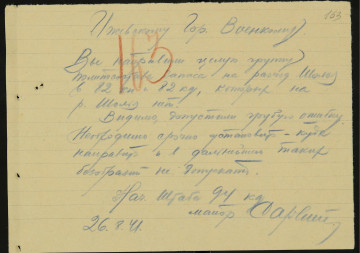 163
Ижевскому Гор. Военкому
113
Вы направили целую группу
политсостава запаса на разъезд Шолья
в 82 кп и 82 кд, которых на
р. Шолья нет.
Видимо, допустили грубую ошибку.
Необходимо срочно установить - куда
направить и в дальнейшем таких
безобразий не допускать.
Нач. Штаба 94 кд
майор
26.8.41.